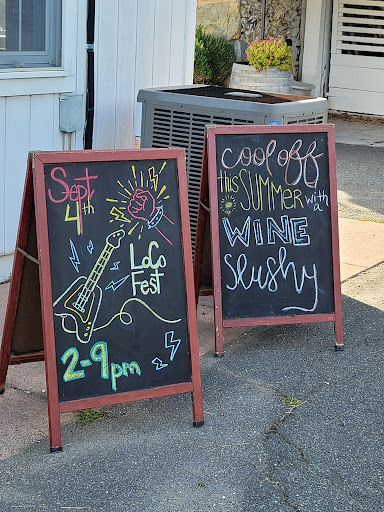 Sept
4th
LoCo
Fest
2-9pm
Cool off
this SUMMER with
a
WINE
Slushy